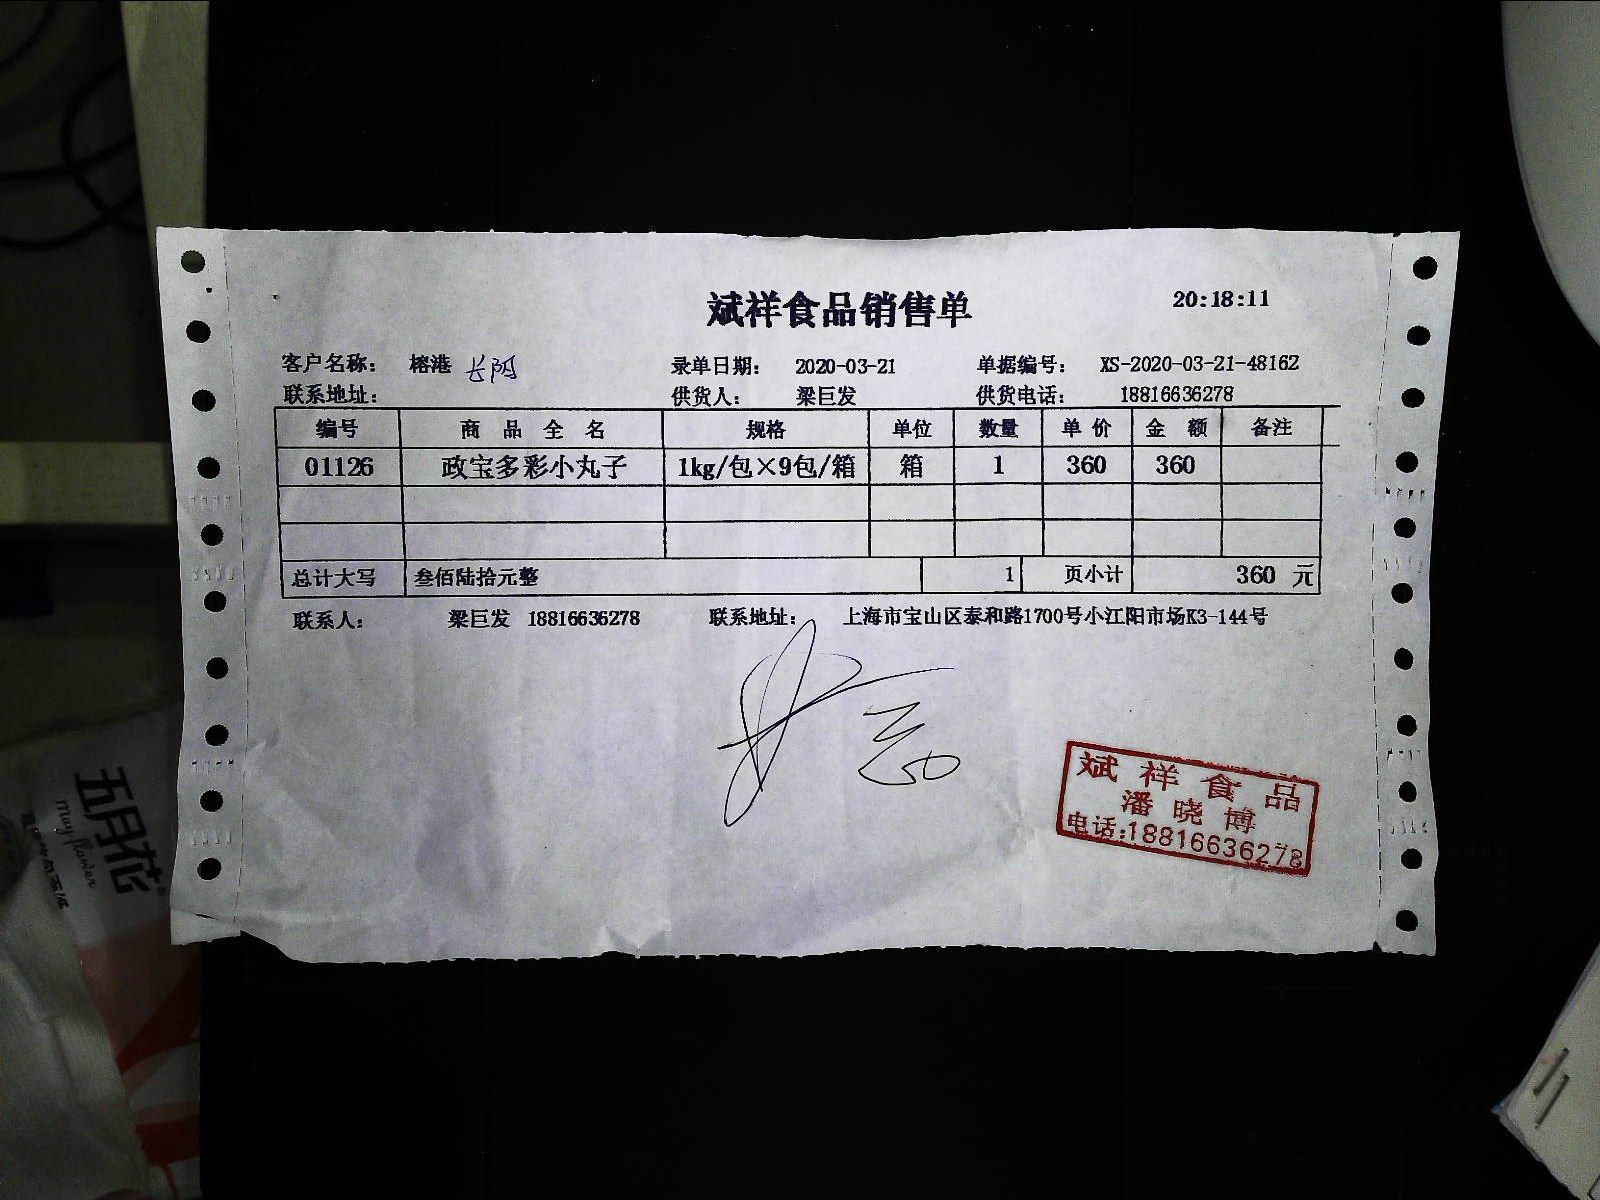 斌祥食品销售单
20:18:11
客户名称: 榕港 长阳 录单日期: 2020-03-21 单据编号: XS-2020-03-21-48162
联系地址: 供货人: 梁巨发 供货电话: 18816636278
编号 商品全名 规格 单位 数量 单价 金额 备注
01126 政宝多彩小丸子 1kg/包×9包/箱 箱 1 360 360
总计大写 叁佰陆拾元整 1 页小计 360 元
联系人: 梁巨发 18816636278 联系地址: 上海市宝山区泰和路1700号小江阳市场K3-144号
斌祥食品
潘晓博
电话:18816636278
五月花
Mayflower